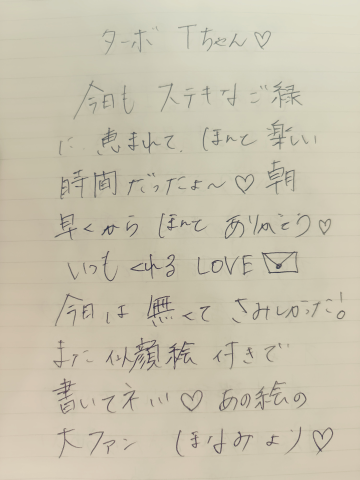 ターボ Tちゃん♡
今日も ステキなご縁
に 恵まれて ほんと楽しい
時間だったよ〜♡ 朝
早くから ほんと ありがとう♡
いつもくれる LOVE✉
今日は 無くて さみしかった!
また 似顔絵 付きで
書いてネ!!!♡ あの絵の
大ファン ほなみより♡